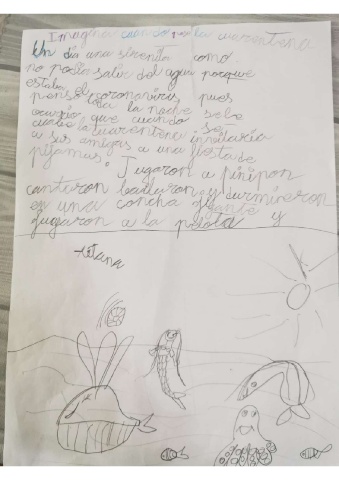 Imagina cuando pasa la cuarentena
Un día una sirenita como
no podía salir del agua porque
estaba el coronavirus pues
pensó toda la noche se le
ocurrió que cuando
la cuarentena se invitaría
a sus amigas a una fiesta de
pijamas. Jugaron a pinipon
cantaron bailaron y durmieron
en una concha gigante y
jugaron a la pelota